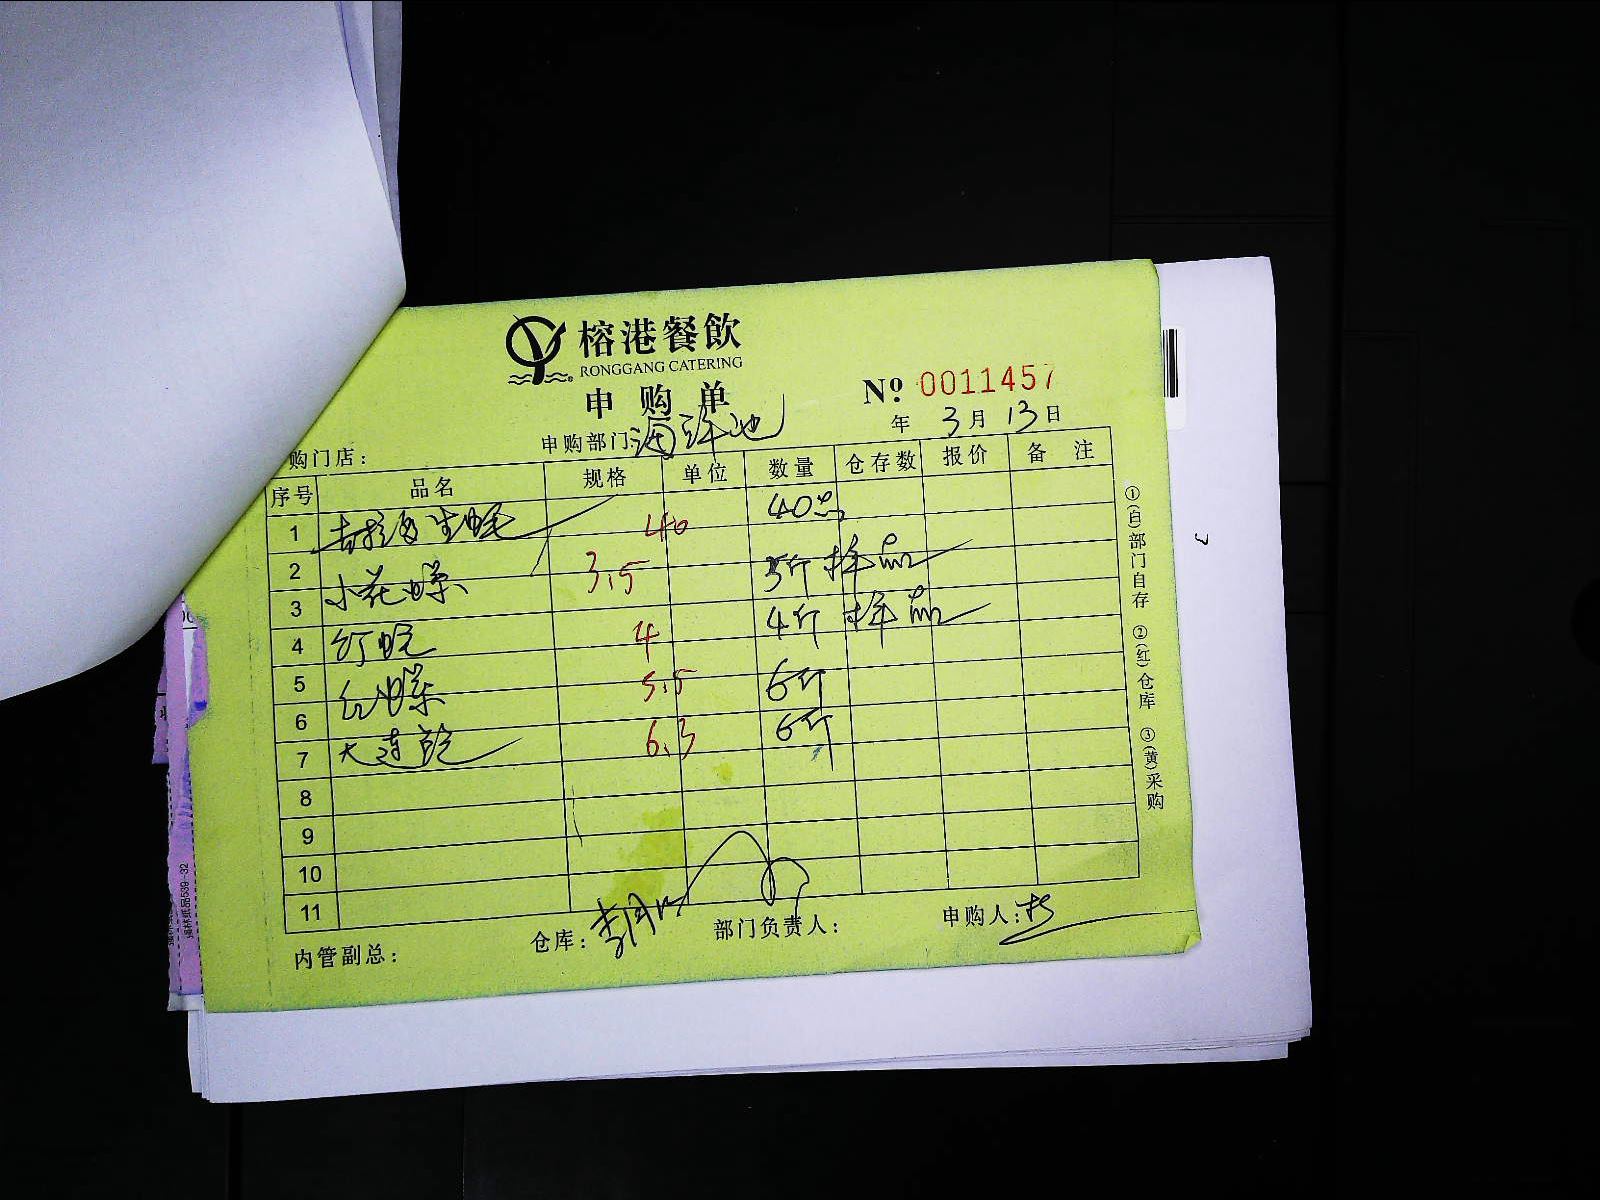 榕港餐飲
RONGGANG CATERING
申购单
№ 0011457
年 3月 13日
购门店： 申购部门：海鲜池
序号 品名 规格 单位 数量 仓存数 报价 备注
1 吉拉多生蚝 40 40只
2 小花螺 3.5 5斤 样品
3 4斤 样品
4 4
5 红螺 5.5 6斤
6 大连鲍 6.3 6斤
7
8
9
10
11
内管副总： 仓库： 部门负责人： 申购人：
①(白)部门自存 ②(红)仓库 ③(黄)采购
539-32